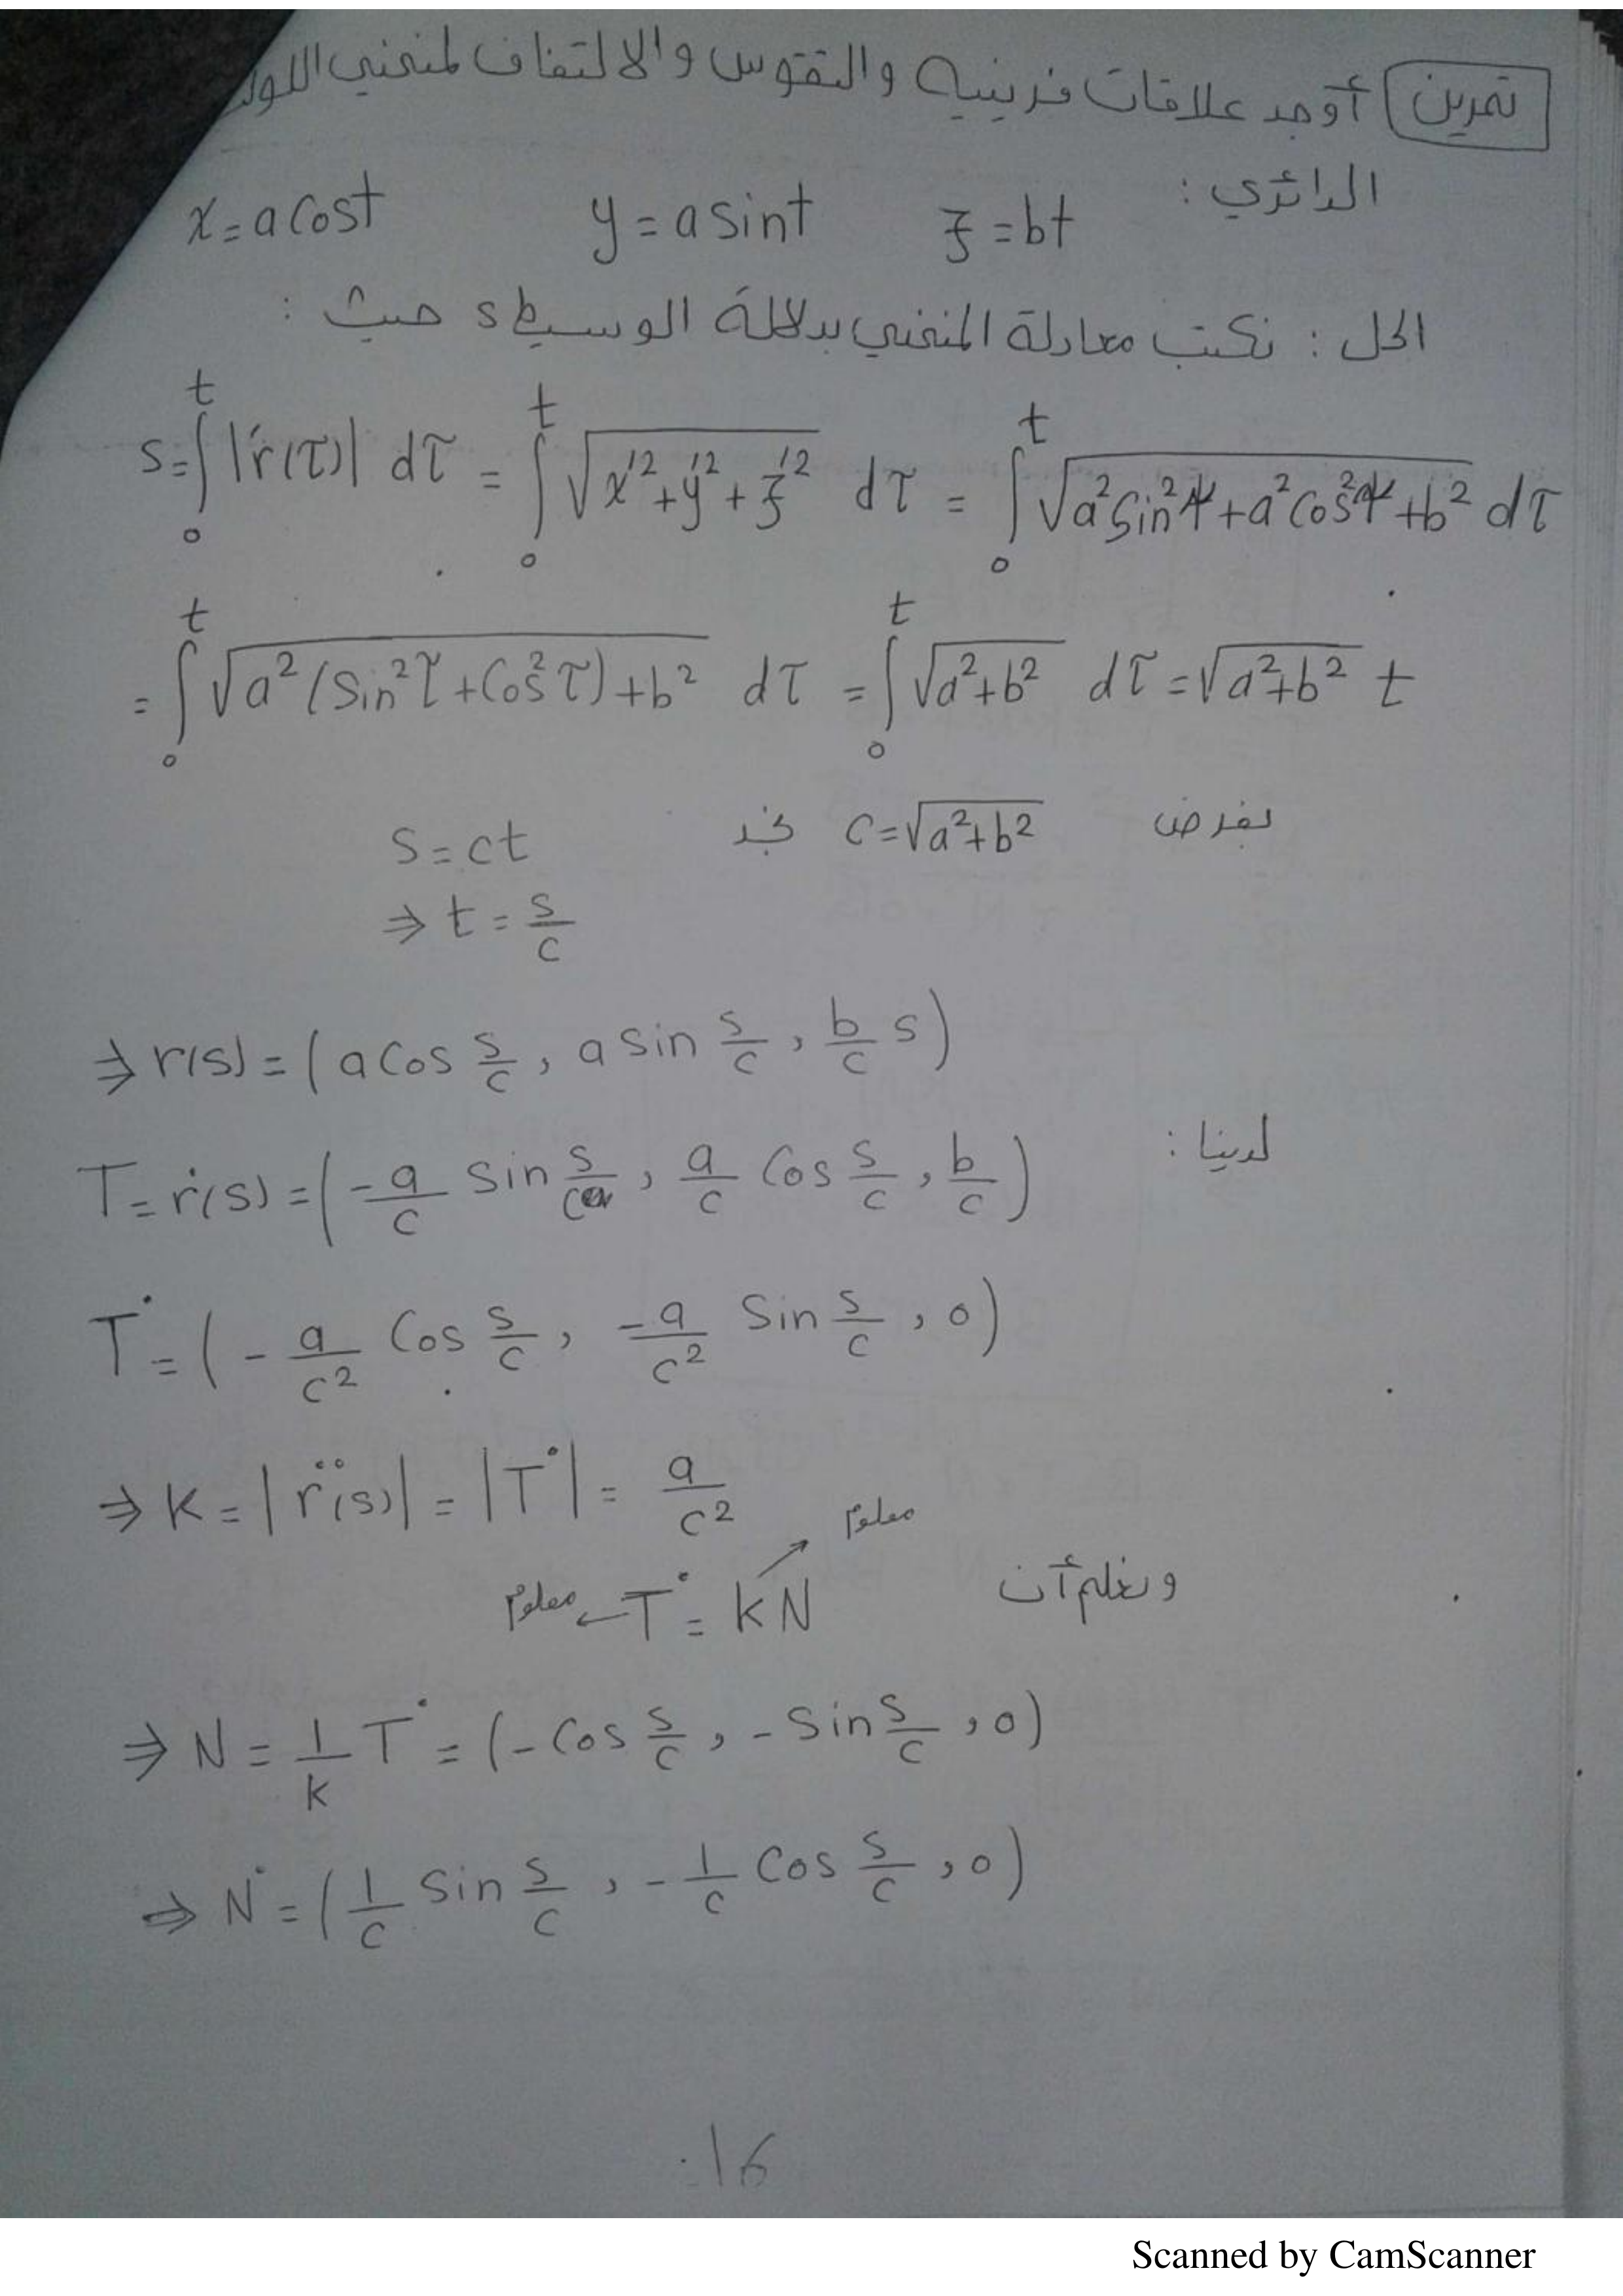 تمرين أوجد علاقات فرينيه والتقوس والالتفاف لمنحني اللولب
الدائري :
x = a cost y = a sint z = bt
الحل : نكتب معادلة المنحني بدلالة الوسيط s حيث :
s = ∫₀ᵗ |r'(τ)| dτ = ∫₀ᵗ √(x'² + y'² + z'²) dτ = ∫₀ᵗ √(a² sin² τ + a² cos² τ + b²) dτ
= ∫₀ᵗ √(a² (sin² τ + cos² τ) + b²) dτ = ∫₀ᵗ √(a² + b²) dτ = √(a² + b²) t
بفرض c = √(a² + b²) نجد s = ct
⇒ t = s/c
⇒ r(s) = (a cos s/c , a sin s/c , b/c s)
لدينا : T = ṙ(s) = (-a/c sin s/c , a/c cos s/c , b/c)
T˙ = (-a/c² cos s/c , -a/c² sin s/c , 0)
⇒ k = |r̈(s)| = |T˙| = a/c²
معلوم
ونعلم أن T˙ = kN معلوم
⇒ N = 1/k T˙ = (-cos s/c , -sin s/c , 0)
⇒ N˙ = (1/c sin s/c , -1/c cos s/c , 0)
16
Scanned by CamScanner